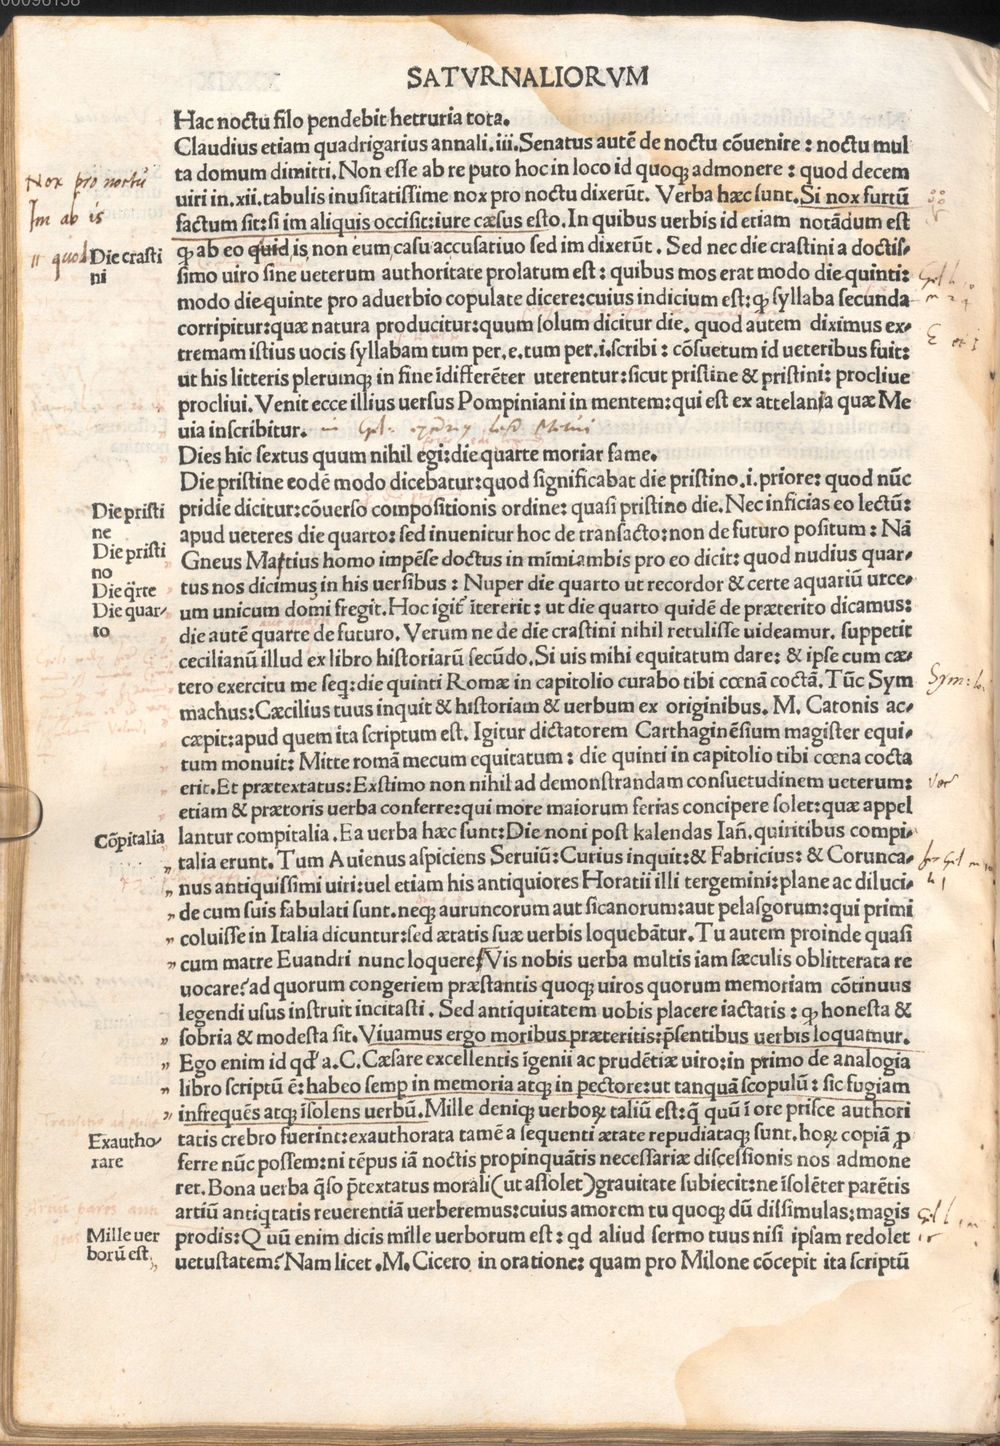 00096158
SATVRNALIORVM
Hac noctu filo pendebit hetruria tota.
Claudius etiam quadrigarius annali.iii.Senatus autē de noctu cōuenire: noctu mul
ta domum dimitti. Non esse ab re puto hoc in loco id quoq; admonere: quod decem
Nox pro noctu
uiri in.xii.tabulis inusitatissime nox pro noctu dixerūt. Verba hæc sunt. Si nox furtū
Im ab is
factum sit:si im aliquis occisit:iure cæsus esto. In quibus uerbis id etiam notādum est
quod
Die crasti
ni
ꝙ ab eo quid is non eum casu accusatiuo sed im dixerūt. Sed nec die crastini a doctis-
simo uiro sine ueterum authoritate prolatum est: quibus mos erat modo diequinti:
modo diequinte pro aduerbio copulate dicere:cuius indicium est:ꝙ syllaba secunda
corripitur:quæ natura producitur:quum solum dicitur die. quod autem diximus ex-
tremam istius uocis syllabam tum per.e.tum per.i.scribi: cōsuetum id ueteribus fuit:
ut his litteris plerumq; in fine īdifferēter uterentur:sicut pristine & pristini: procliue
procliui. Venit ecce illius uersus Pompiniani in mentem:qui est ex attelania quæ Me
uia inscribitur.
Dies hic sextus quum nihil egi:die quarte moriar fame.
Die pristine eodē modo dicebatur:quod significabat die pristino.i.priore: quod nūc
Die pristi
ne
pridie dicitur:cōuerso compositionis ordine: quasi pristino die. Nec inficias eo lectū:
apud ueteres die quarto: sed inuenitur hoc de transacto:non de futuro positum: Nā
Die pristi
no
Gneus Mattius homo impēse doctus in mimiambis pro eo dicit: quod nudius quar-
Die q̄rte
tus nos dicimus in his uersibus: Nuper die quarto ut recordor & certe aquariū urce-
Die quar-
to
um unicum domi fregit. Hoc igit̄ ītererit: ut die quarto quidē de præterito dicamus:
die autē quarte de futuro. Verum ne de die crastini nihil retulisse uideamur. suppetit
cecilianū illud ex libro historiarū secūdo. Si uis mihi equitatum dare: & ipse cum cæ-
tero exercitu me seq:die quinti Romæ in capitolio curabo tibi cœnā coctā. Tūc Sym
machus:Cæcilius tuus inquit & historiam & uerbum ex originibus. M. Catonis ac-
cæpit:apud quem ita scriptum est. Igitur dictatorem Carthaginēsium magister equi-
tum monuit: Mitte romā mecum equitatum: die quinti in capitolio tibi cœna cocta
erit. Et prætextatus:Exstimo non nihil ad demonstrandam consuetudinem ueterum:
etiam & prætoris uerba conferre:qui more maiorum ferias concipere solet:quæ appel
Cōpitalia
lantur compitalia. Ea uerba hæc sunt:Die noni post kalendas Iañ.quiritibus compi-
talia erunt. Tum Auienus aspiciens Seruiū:Curius inquit:& Fabricius: & Corunca-
nus antiquissimi uiri:uel etiam his antiquiores Horatii illi tergemini:plane ac diluci-
de cum suis fabulati sunt.neq; auruncorum aut sicanorum:aut pelasgorum:qui primi
coluisse in Italia dicuntur:sed ætatis suæ uerbis loquebātur. Tu autem proinde quasi
cum matre Euandri nunc loquere Vis nobis uerba multis iam sæculis oblitterata re
uocare? ad quorum congeriem præstantis quoq; uiros quorum memoriam cōtinuus
legendi usus instruit incitasti. Sed antiquitatem uobis placere iactatis: ꝙ honesta &
sobria & modesta sit. Viuamus ergo moribus præteritis:p̄sentibus uerbis loquamur.
Ego enim id qd' a.C.Cæsare excellentis īgenii ac prudētiæ uiro:in primo de analogia
libro scriptū ē:habeo semp in memoria atq; in pectore:ut tanquā scopulū: sic fugiam
infrequēs atq; īsolens uerbū. Mille deniq; uerboꝝ taliū est:q̄ quū ī ore prisce authori
Exautho-
rare
tatis crebro fuerint:exauthorata tamē a sequenti ætate repudiataq; sunt.hoꝝ copiā ꝓ
ferre nūc possem:ni tēpus iā noctis propinquātis necessariæ discessionis nos admone
ret. Bona uerba q̄so p̄textatus morali(ut assolet)grauitate subiecit:ne īsolēter parētis
artiū antiqtatis reuerentiā uerberemus:cuius amorem tu quoq; dū dissimulas:magis
Mille uer
borū est.
prodis:Quū enim dicis mille uerborum est: qd aliud sermo tuus nisi ipsam redolet
uetustatem? Nam licet .M.Cicero in oratione: quam pro Milone cōcepit ita scriptū